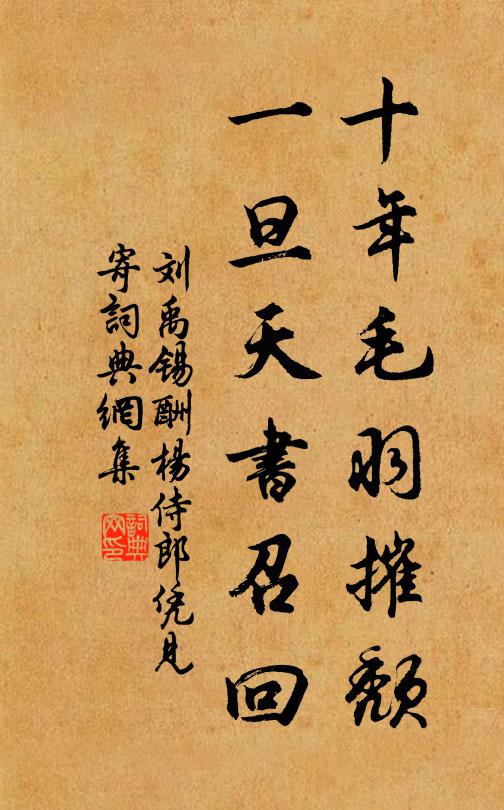 十年毛羽摧颓
一旦天书召回
刘禹锡酬楊侍郎凭見
寄詞典網集
詞典網印